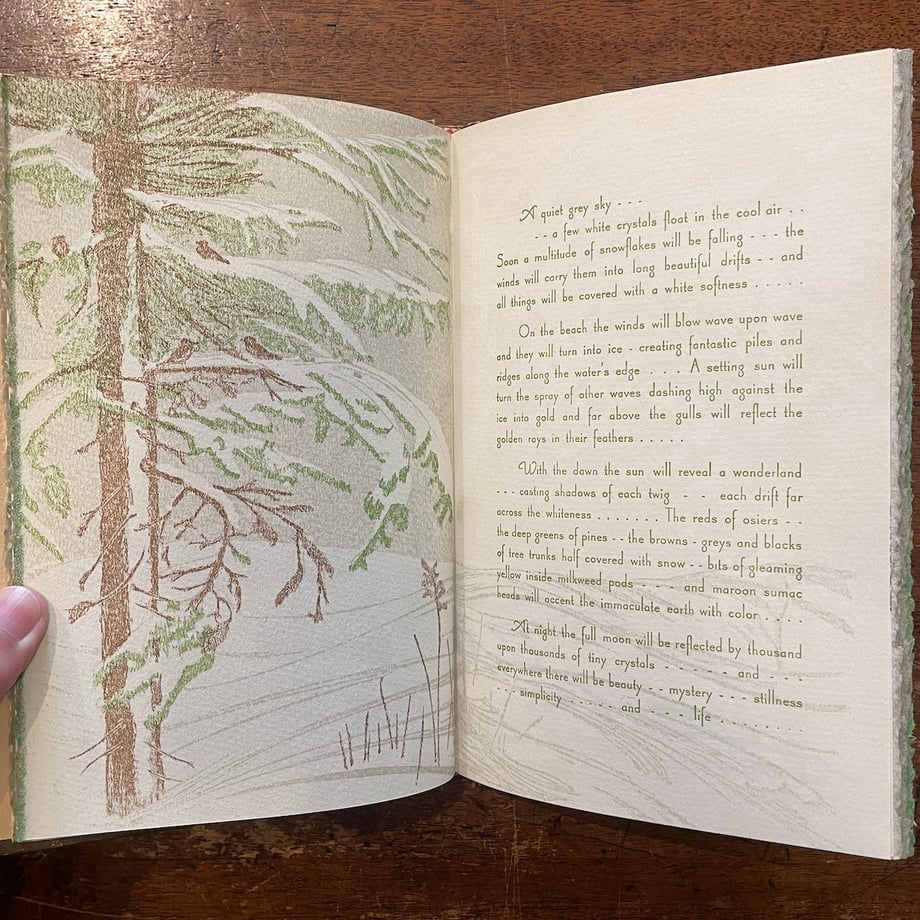 A quiet grey sky - - -
- - a few white crystals float in the cool air . .
Soon a multitude of snowflakes will be falling - - - the
winds will carry them into long beautiful drifts - - and
all things will be covered with a white softness . . . . .
On the beach the winds will blow wave upon wave
and they will turn into ice - creating fantastic piles and
ridges along the water's edge . . . . A setting sun will
turn the spray of other waves dashing high against the
ice into gold and far above the gulls will reflect the
golden rays in their feathers . . . . .
With the dawn the sun will reveal a wonderland
- - - casting shadows of each twig - - each drift far
across the whiteness . . . . . . . The reds of osiers - -
the deep greens of pines - - the browns - greys and blacks
of tree trunks half covered with snow - - bits of gleaming
yellow inside milkweed pods - - - - - and maroon sumac
heads will accent the immaculate earth with color . . . .
At night the full moon will be reflected by thousand
upon thousands of tiny crystals - - - - - - - and - - -
everywhere there will be beauty - - mystery - - - stillness
- - - simplicity . . . . . . and - - - - life . . . . . . . .